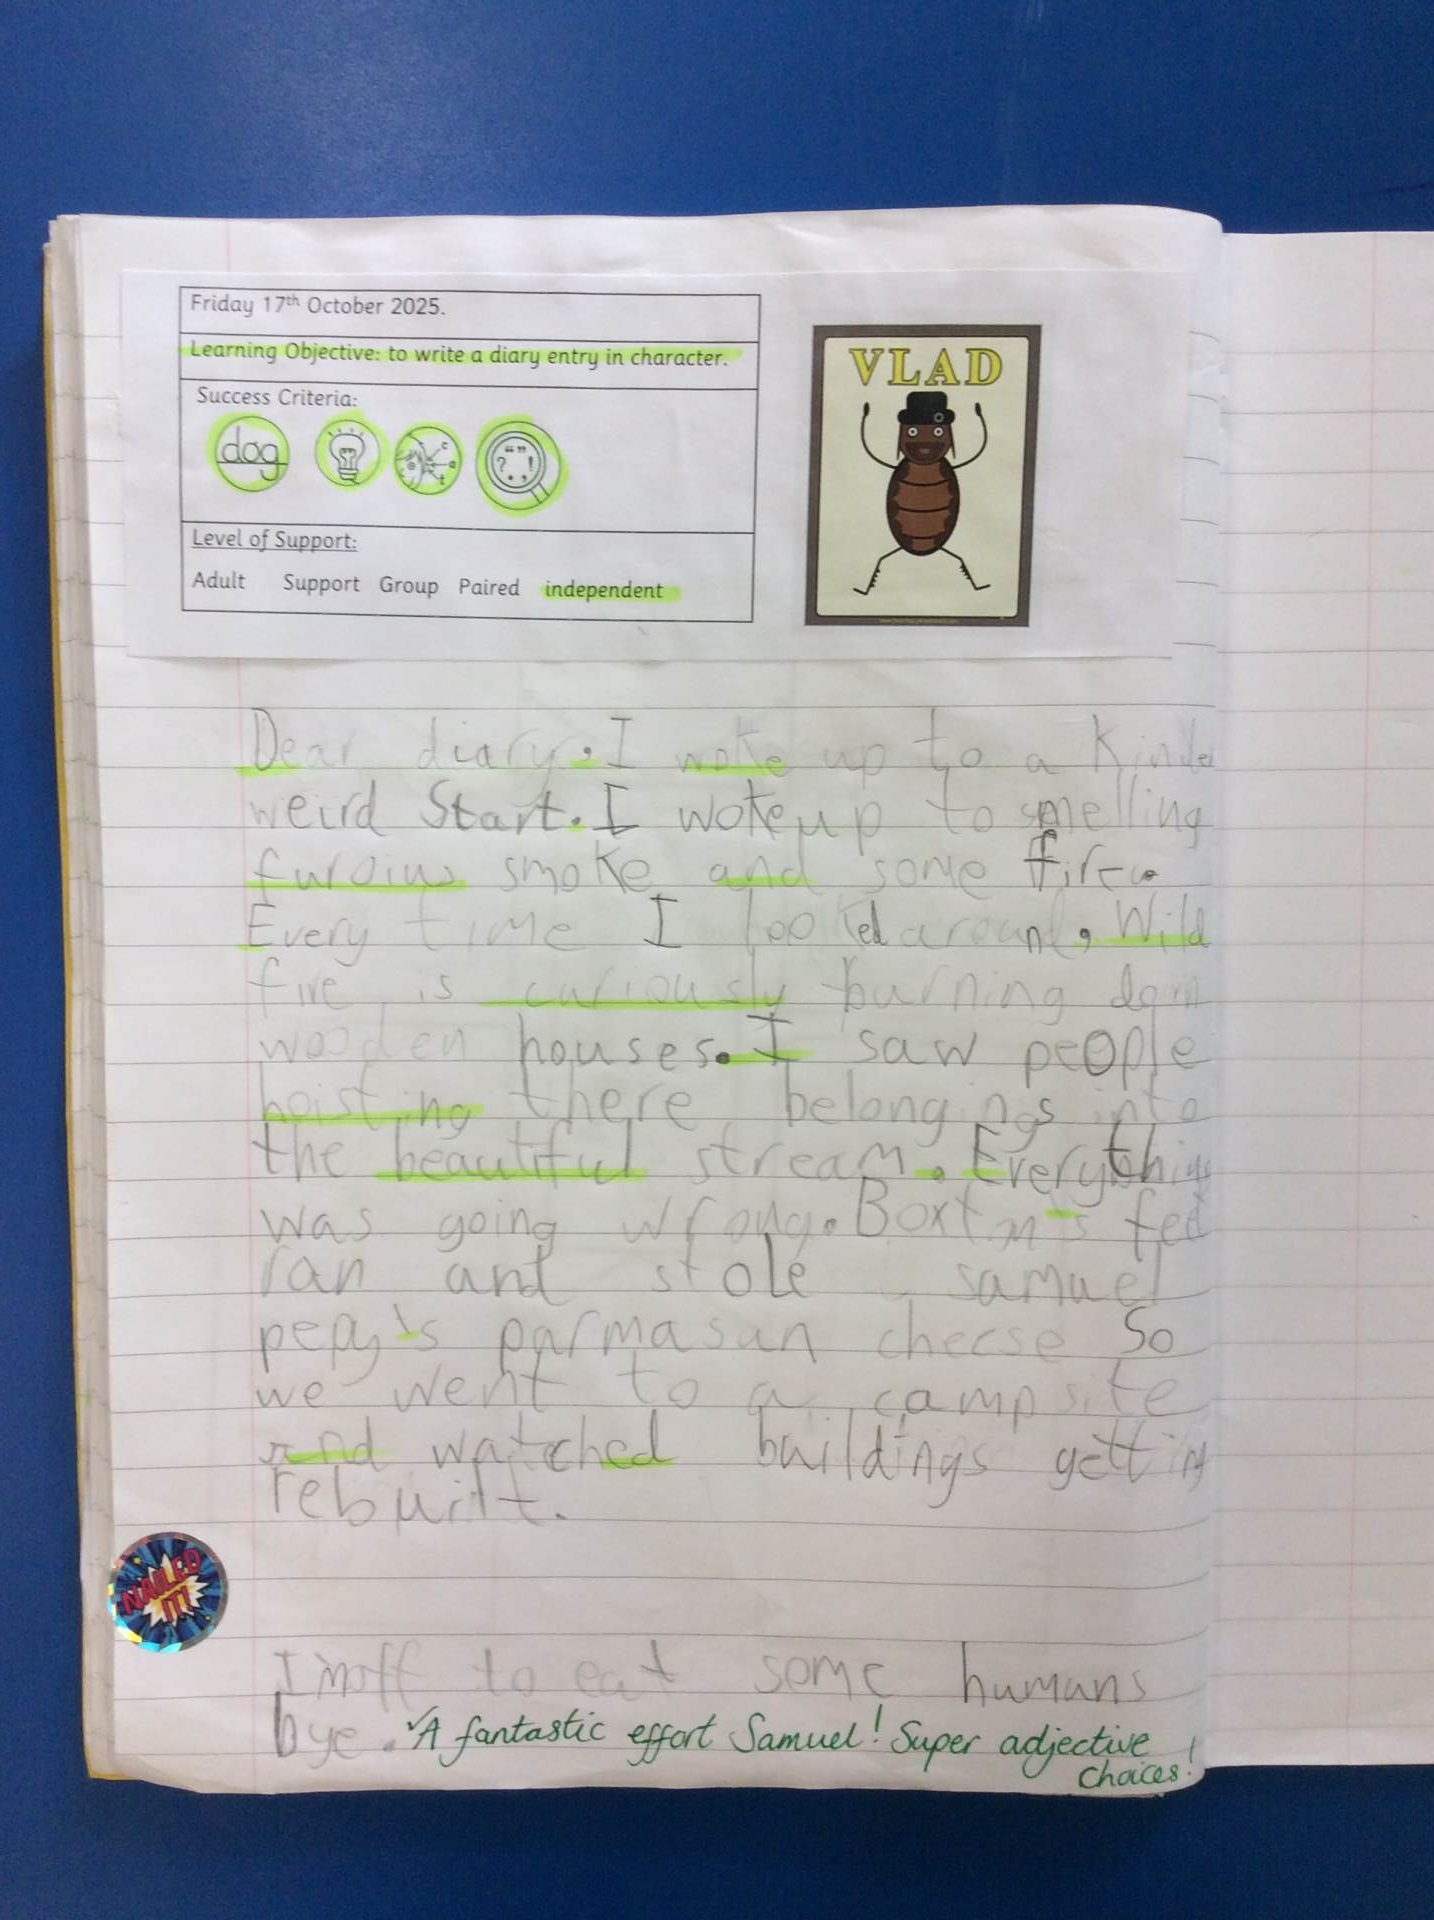 Friday 17th October 2025.
Learning Objective: to write a diary entry in character.
Success Criteria:
dog
Level of Support:
Adult Support Group Paired independent
VLAD
Dear diary, I woke up to a kinda
weird Start. I woke up to smelling
smoke and some
Every time I looked around, Wild
fire is curiously burning down
wooden houses. I saw people
hoisting there belongings into
the beautiful stream. Everything
was going wrong. fed
ran and stole samuel
pepy's parmasan cheese So
we went to a campsite
and watched buildings getting
rebuilt.
NAILED IT!
I'm off to eat some humans
bye.
A fantastic effort Samuel! Super adjective
choices!